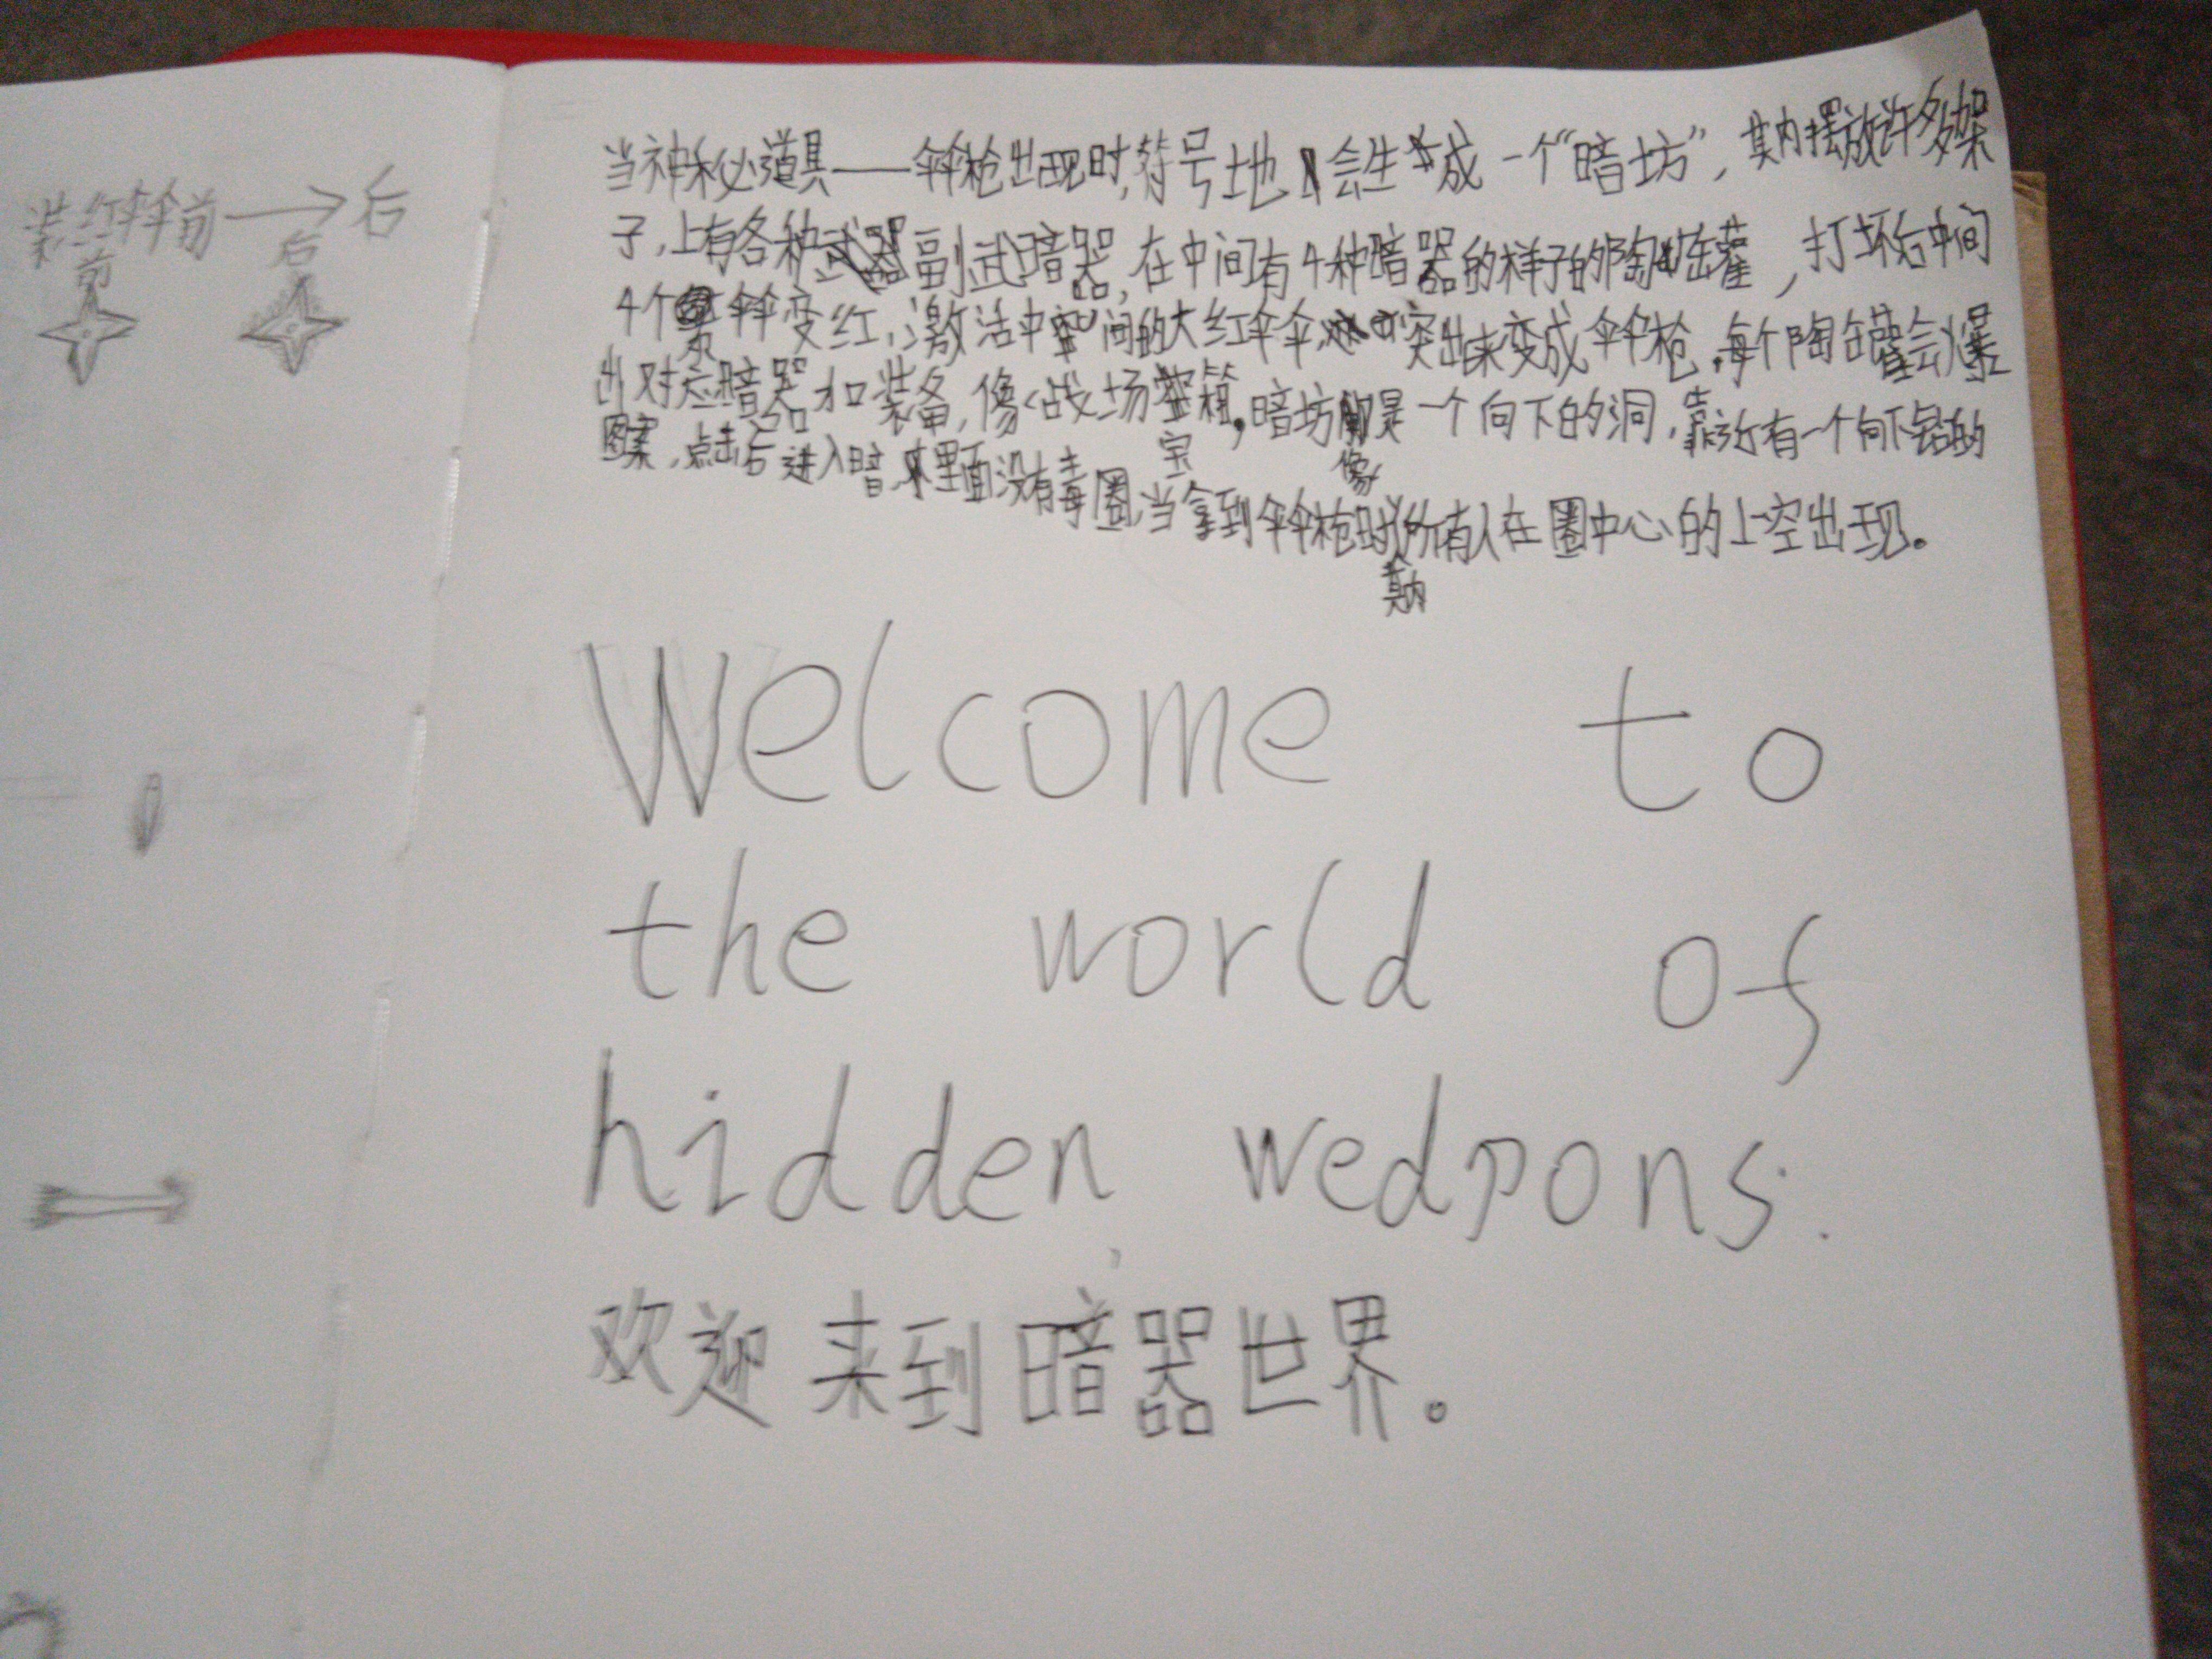 装红伞前→后
前
后
当神秘道具——伞枪出现时,符号地会生成一个“暗坊”,其内摆放许多架
子,上有各种副武暗器,在中间有4种暗器的样子的陶罐,打坏后中间
4个伞变红,激活中间的大红伞伞,突出来变成伞枪,每个陶罐会爆
出对应暗器和装备,像战场宝箱,暗坊像是一个向下的洞,靠近有一个向下的
图案,点击后进入暗,里面没有毒圈,当拿到伞枪时其内所有人在圈中心的上空出现。
Welcome to
the world of
hidden wedpons.
欢迎来到暗器世界。